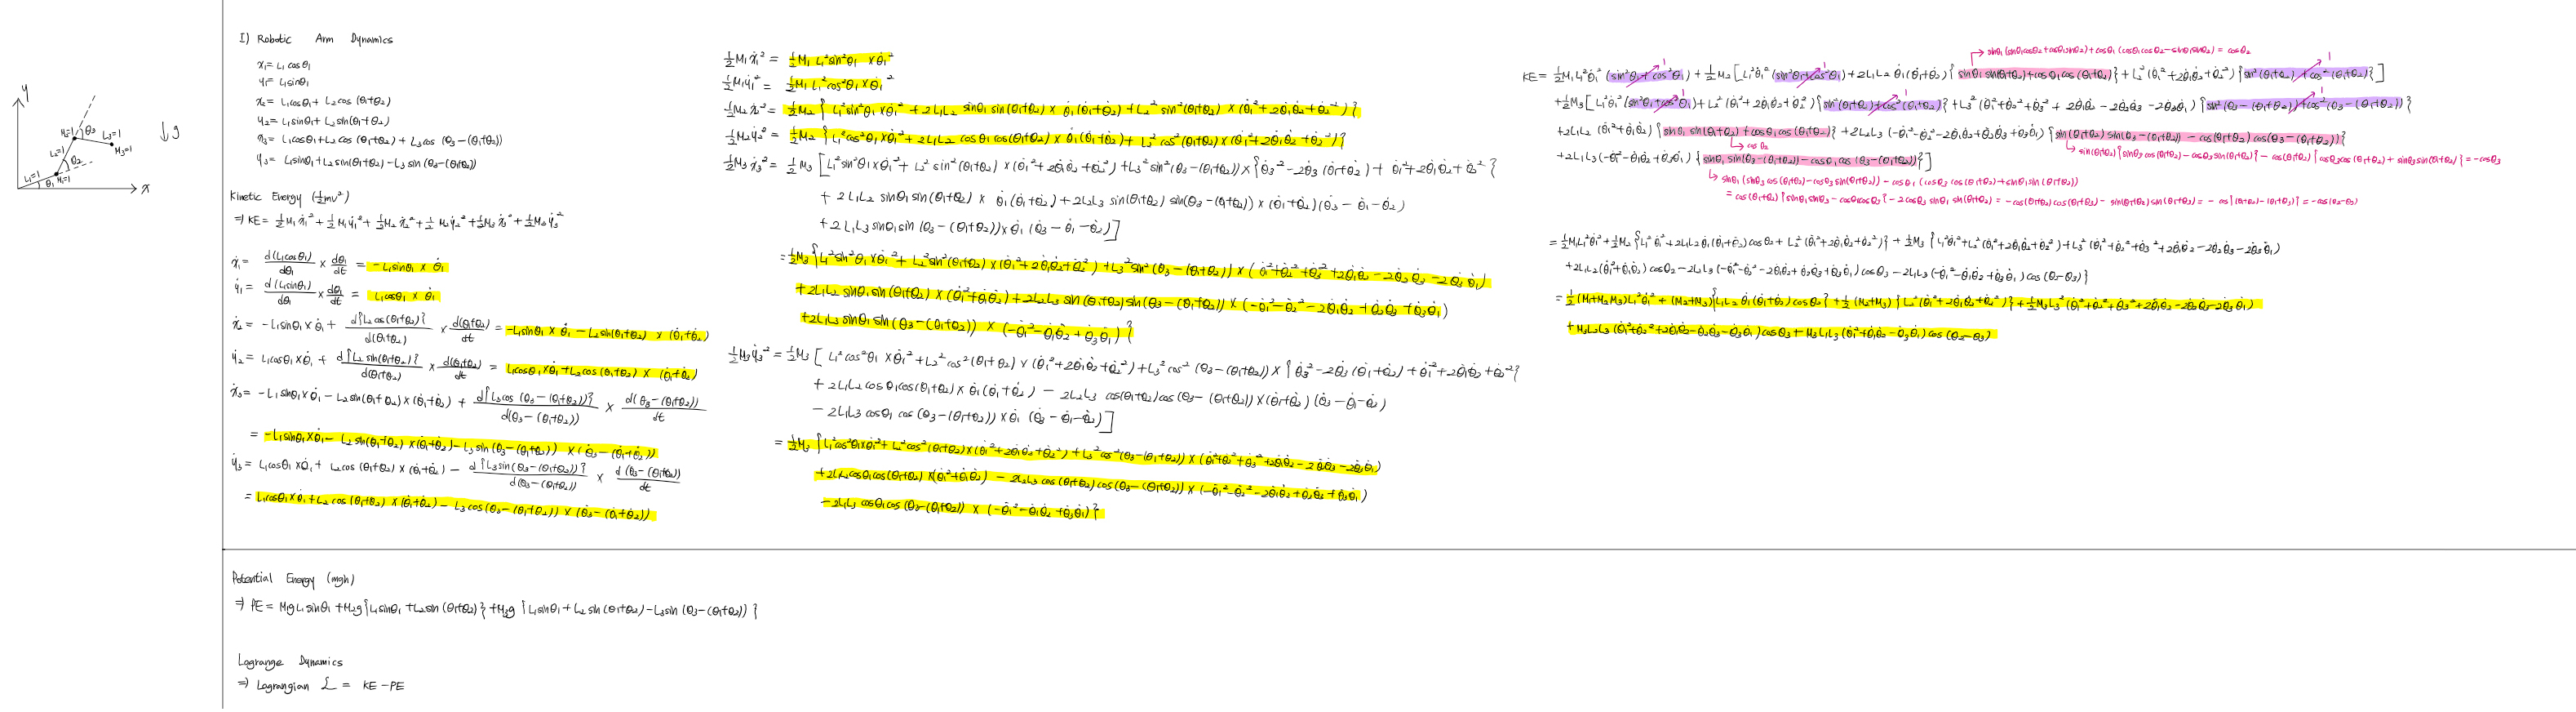 y
x
↓g
L₁=1
θ₁
M₁=1
L₂=1
θ₂
M₂=1
θ₃
L₃=1
M₃=1
I) Robotic Arm Dynamics
x₁= L₁ cosθ₁
y₁= L₁sinθ₁
x₂= L₁cosθ₁+ L₂cos (θ₁+θ₂)
y₂= L₁sinθ₁+ L₂sin(θ₁+θ₂)
x₃= L₁cosθ₁+L₂cos (θ₁+θ₂) + L₃cos (θ₃-(θ₁+θ₂))
y₃= L₁sinθ₁+L₂sin(θ₁+θ₂)-L₃sin (θ₃-(θ₁+θ₂))
Kinetic Energy (½mv²)
⇒ KE= ½M₁ẋ₁²+ ½M₁ẏ₁²+ ½M₂ẋ₂²+ ½M₂ẏ₂²+½M₃ẋ₃²+½M₃ẏ₃²
ẋ₁= d(L₁cosθ₁)/dθ₁ × dθ₁/dt = -L₁sinθ₁ × θ̇₁
ẏ₁= d(L₁sinθ₁)/dθ₁ × dθ₁/dt = L₁cosθ₁ × θ̇₁
ẋ₂= -L₁sinθ₁×θ̇₁+ d{L₂cos(θ₁+θ₂)}/d(θ₁+θ₂) × d(θ₁+θ₂)/dt = -L₁sinθ₁ × θ̇₁ - L₂sin(θ₁+θ₂) × (θ̇₁+θ̇₂)
ẏ₂= L₁cosθ₁×θ̇₁ + d{L₂ sin(θ₁+θ₂)}/d(θ₁+θ₂) × d(θ₁+θ₂)/dt = L₁cosθ₁×θ̇₁+L₂cos (θ₁+θ₂) × (θ̇₁+θ̇₂)
ẋ₃= -L₁sinθ₁×θ̇₁ - L₂sin(θ₁+θ₂)×(θ̇₁+θ̇₂) + d{L₃cos (θ₃-(θ₁+θ₂))}/d(θ₃-(θ₁+θ₂)) × d(θ₃-(θ₁+θ₂))/dt
= -L₁sinθ₁×θ̇₁- L₂sin(θ₁+θ₂) ×(θ̇₁+θ̇₂)-L₃sin (θ₃-(θ₁+θ₂)) ×(θ̇₃-(θ̇₁+θ̇₂))
ẏ₃= L₁cosθ₁×θ̇₁+ L₂cos (θ₁+θ₂) ×(θ̇₁+θ̇₂) - d{L₃sin (θ₃-(θ₁+θ₂))}/d(θ₃-(θ₁+θ₂)) × d(θ₃-(θ₁+θ₂))/dt
= L₁cosθ₁×θ̇₁+L₂cos (θ₁+θ₂) ×(θ̇₁+θ̇₂) - L₃cos(θ₃-(θ₁+θ₂)) × (θ̇₃-(θ̇₁+θ̇₂))
½M₁ẋ₁²= ½M₁ L₁²sin²θ₁ ×θ̇₁²
½M₁ẏ₁²= ½M₁ L₁²cos²θ₁ ×θ̇₁²
½M₂ẋ₂²= ½M₂ { L₁²sin²θ₁×θ̇₁² + 2L₁L₂ sinθ₁ sin(θ₁+θ₂) × θ̇₁(θ̇₁+θ̇₂) +L₂² sin²(θ₁+θ₂) ×(θ̇₁²+2θ̇₁θ̇₂+θ̇₂²) }
½M₂ẏ₂²= ½M₂ {L₁²cos²θ₁×θ̇₁² + 2L₁L₂ cosθ₁cos(θ₁+θ₂) × θ̇₁(θ̇₁+θ̇₂)+ L₂²cos²(θ₁+θ₂)×(θ̇₁²+2θ̇₁θ̇₂+θ̇₂²)}
½M₃ẋ₃²= ½M₃ [L₁²sin²θ₁×θ̇₁²+L₂² sin²(θ₁+θ₂) ×(θ̇₁²+2θ̇₁θ̇₂+θ̇₂²)+L₃²sin²(θ₃-(θ₁+θ₂))×{θ̇₃²-2θ̇₃(θ̇₁+θ̇₂)+ θ̇₁²+2θ̇₁θ̇₂+θ̇₂²}
+ 2L₁L₂ sinθ₁sin(θ₁+θ₂) × θ̇₁(θ̇₁+θ̇₂)+2L₂L₃ sin(θ₁+θ₂) sin(θ₃-(θ₁+θ₂))×(θ̇₁+θ̇₂)(θ̇₃-θ̇₁-θ̇₂)
+2L₁L₃sinθ₁sin (θ₃-(θ₁+θ₂))×θ̇₁ (θ̇₃-θ̇₁-θ̇₂)]
=½M₃{L₁²sin²θ₁×θ̇₁²+ L₂²sin²(θ₁+θ₂)×(θ̇₁²+2θ̇₁θ̇₂+θ̇₂²)+L₃²sin²(θ₃-(θ₁+θ₂)) ×(θ̇₁²+θ̇₂²+θ̇₃²+2θ̇₁θ̇₂-2θ̇₂θ̇₃-2θ̇₃θ̇₁)
+2L₁L₂ sinθ₁sin(θ₁+θ₂)×(θ̇₁²+θ̇₁θ̇₂)+2L₂L₃ sin(θ₁+θ₂)sin(θ₃-(θ₁+θ₂))×(-θ̇₁²-θ̇₂²-2θ̇₁θ̇₂+θ̇₂θ̇₃+θ̇₃θ̇₁)
+2L₁L₃sinθ₁sin(θ₃-(θ₁+θ₂)) × (-θ̇₁²-θ̇₁θ̇₂+θ̇₃θ̇₁)}
½M₃ẏ₃²=½M₃ [L₁²cos²θ₁×θ̇₁²+L₂²cos²(θ₁+θ₂)×(θ̇₁²+2θ̇₁θ̇₂+θ̇₂²)+L₃²cos²(θ₃-(θ₁+θ₂))×{θ̇₃²-2θ̇₃(θ̇₁+θ̇₂)+θ̇₁²+2θ̇₁θ̇₂+θ̇₂²}
+ 2L₁L₂cosθ₁cos(θ₁+θ₂)×θ̇₁(θ̇₁+θ̇₂) - 2L₂L₃ cos(θ₁+θ₂)cos(θ₃-(θ₁+θ₂))×(θ̇₁+θ̇₂)(θ̇₃-θ̇₁-θ̇₂)
- 2L₁L₃cosθ₁ cos(θ₃-(θ₁+θ₂))×θ̇₁ (θ̇₃-θ̇₁-θ̇₂)]
= ½M₃ {L₁²cos²θ₁×θ̇₁²+L₂²cos²(θ₁+θ₂)×(θ̇₁²+2θ̇₁θ̇₂+θ̇₂²)+L₃²cos²(θ₃-(θ₁+θ₂))×(θ̇₁²+θ̇₂²+θ̇₃²+2θ̇₁θ̇₂-2θ̇₂θ̇₃-2θ̇₃θ̇₁)
+2L₁L₂cosθ₁cos(θ₁+θ₂)×(θ̇₁²+θ̇₁θ̇₂) - 2L₂L₃ cos(θ₁+θ₂)cos(θ₃-(θ₁+θ₂))×(-θ̇₁²-θ̇₂²-2θ̇₁θ̇₂+θ̇₂θ̇₃+θ̇₃θ̇₁)
-2L₁L₃cosθ₁cos(θ₃-(θ₁+θ₂)) × (-θ̇₁²-θ̇₁θ̇₂+θ̇₃θ̇₁)}
→ sinθ₁(sinθ₁cosθ₂+cosθ₁sinθ₂)+cosθ₁(cosθ₁cosθ₂-sinθ₁sinθ₂) = cosθ₂
1
1
1
KE= ½M₁L₁²θ̇₁²(sin²θ₁+cos²θ₁) + ½M₂[L₁²θ̇₁²(sin²θ₁+cos²θ₁)+2L₁L₂ θ̇₁(θ̇₁+θ̇₂){sinθ₁sin(θ₁+θ₂)+cosθ₁cos(θ₁+θ₂)}+L₂²(θ̇₁²+2θ̇₁θ̇₂+θ̇₂²){sin²(θ₁+θ₂)+cos²(θ₁+θ₂)}]
1
1
1
+½M₃[L₁²θ̇₁²(sin²θ₁+cos²θ₁)+L₂²(θ̇₁²+2θ̇₁θ̇₂+θ̇₂²){sin²(θ₁+θ₂)+cos²(θ₁+θ₂)}+L₃²(θ̇₁²+θ̇₂²+θ̇₃²+2θ̇₁θ̇₂-2θ̇₂θ̇₃-2θ̇₃θ̇₁){sin²(θ₃-(θ₁+θ₂))+cos²(θ₃-(θ₁+θ₂))}
+2L₁L₂(θ̇₁²+θ̇₁θ̇₂){sinθ₁sin(θ₁+θ₂)+cosθ₁cos(θ₁+θ₂)}+2L₂L₃(-θ̇₁²-θ̇₂²-2θ̇₁θ̇₂+θ̇₂θ̇₃+θ̇₃θ̇₁){sin(θ₁+θ₂)sin(θ₃-(θ₁+θ₂))-cos(θ₁+θ₂)cos(θ₃-(θ₁+θ₂))}
↳ cosθ₂
↳ sin(θ₁+θ₂){sinθ₃cos(θ₁+θ₂)-cosθ₃sin(θ₁+θ₂)}-cos(θ₁+θ₂){cosθ₃cos(θ₁+θ₂)+sinθ₃sin(θ₁+θ₂)}=-cosθ₃
+2L₁L₃(-θ̇₁²-θ̇₁θ̇₂+θ̇₃θ̇₁){sinθ₁sin(θ₃-(θ₁+θ₂))-cosθ₁cos(θ₃-(θ₁+θ₂))}]
↳ sinθ₁(sinθ₃cos(θ₁+θ₂)-cosθ₃sin(θ₁+θ₂))-cosθ₁(cosθ₃cos(θ₁+θ₂)+sinθ₃sin(θ₁+θ₂))
= cos(θ₁+θ₂){sinθ₁sinθ₃-cosθ₁cosθ₃}-2cosθ₃sinθ₁sin(θ₁+θ₂) = -cos(θ₁+θ₂)cos(θ₁+θ₃)-sin(θ₁+θ₂)sin(θ₁+θ₃)=-cos{(θ₁+θ₂)-(θ₁+θ₃)}=-cos(θ₂-θ₃)
=½M₁L₁²θ̇₁²+½M₂{L₁²θ̇₁²+2L₁L₂θ̇₁(θ̇₁+θ̇₂)cosθ₂+L₂²(θ̇₁²+2θ̇₁θ̇₂+θ̇₂²)}+½M₃{L₁²θ̇₁²+L₂²(θ̇₁²+2θ̇₁θ̇₂+θ̇₂²)+L₃²(θ̇₁²+θ̇₂²+θ̇₃²+2θ̇₁θ̇₂-2θ̇₂θ̇₃-2θ̇₃θ̇₁)
+2L₁L₂(θ̇₁²+θ̇₁θ̇₂)cosθ₂-2L₂L₃(-θ̇₁²-θ̇₂²-2θ̇₁θ̇₂+θ̇₂θ̇₃+θ̇₃θ̇₁)cosθ₃-2L₁L₃(-θ̇₁²-θ̇₁θ̇₂+θ̇₃θ̇₁)cos(θ₂-θ₃)}
=½(M₁+M₂M₃)L₁²θ̇₁²+(M₂+M₃){L₁L₂θ̇₁(θ̇₁+θ̇₂)cosθ₂}+½(M₂+M₃){L₂²(θ̇₁²+2θ̇₁θ̇₂+θ̇₂²)}+½M₃L₃²(θ̇₁²+θ̇₂²+θ̇₃²+2θ̇₁θ̇₂-2θ̇₂θ̇₃-2θ̇₃θ̇₁)
+M₃L₂L₃(θ̇₁²+θ̇₂²+2θ̇₁θ̇₂-θ̇₂θ̇₃-θ̇₃θ̇₁)cosθ₃+M₃L₁L₃(θ̇₁²+θ̇₁θ̇₂-θ̇₃θ̇₁)cos(θ₂-θ₃)
Potential Energy (mgh)
⇒ PE= M₁gL₁sinθ₁+M₂g{L₁sinθ₁+L₂sin(θ₁+θ₂)}+M₃g{L₁sinθ₁+L₂sin(θ₁+θ₂)-L₃sin(θ₃-(θ₁+θ₂))}
Lagrange Dynamics
⇒ Lagrangian ℒ = KE-PE